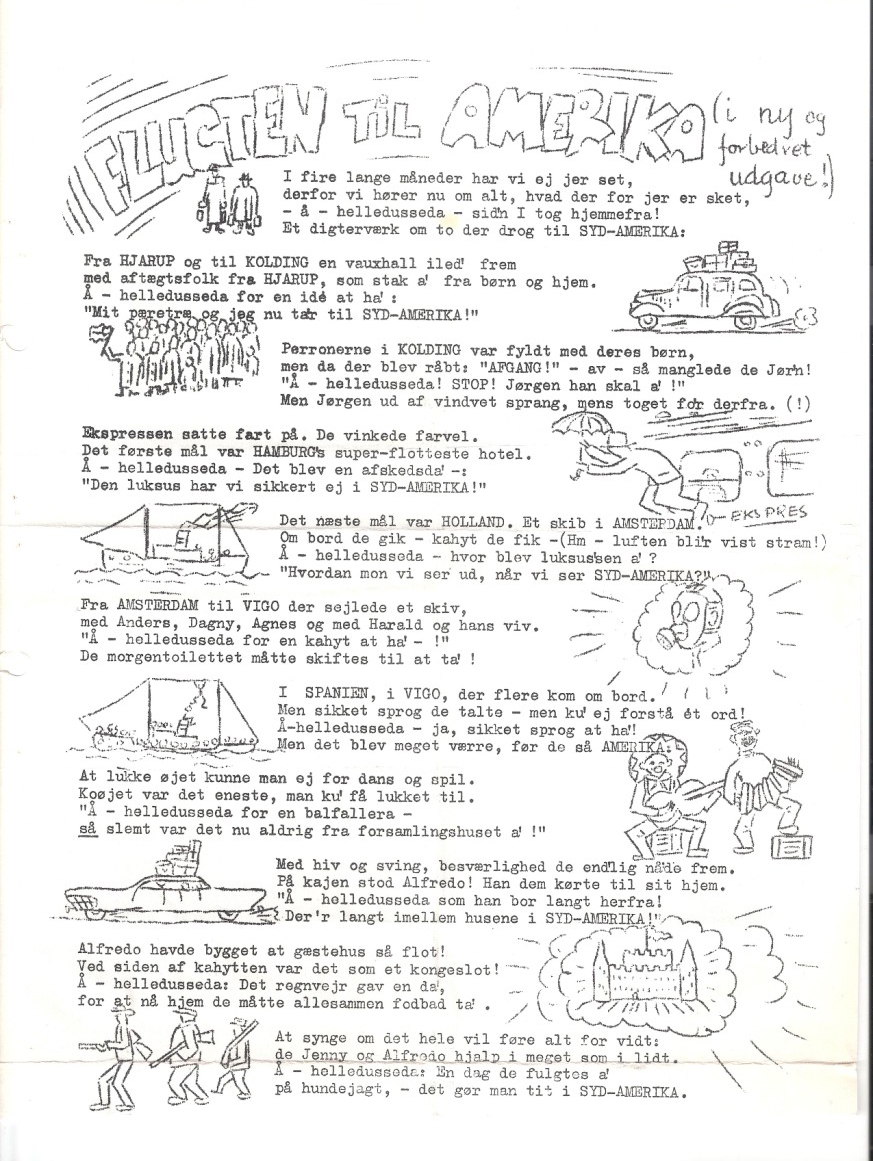 FLUGTEN TIL AMERIKA (i ny og
forbedret
udgave!)
I fire lange måneder har vi ej jer set,
derfor vi hører nu om alt, hvad der for jer er sket,
- å - helledusseda - sid'n I tog hjemmefra!
Et digterværk om to der drog til SYD-AMERIKA:
Fra HJARUP og til KOLDING en vauxhall iled' frem
med aftægtsfolk fra HJARUP, som stak a' fra børn og hjem.
Å - helledusseda for en idé at ha' :
"Mit pæretræ og jeg nu ta'r til SYD-AMERIKA!"
Perronerne i KOLDING var fyldt med deres børn,
men da der blev råbt: "AFGANG!" - av - så manglede de Jør'n!
"Å - helledusseda! STOP! Jørgen han skal a' !"
Men Jørgen ud af vindvet sprang, mens toget for derfra. (!)
Ekspressen satte fart på. De vinkede farvel.
Det første mål var HAMBURG's super-flotteste hotel.
Å - helledusseda - Det blev en afskedsda' -:
"Den luksus har vi sikkert ej i SYD-AMERIKA!"
EKSPRES
Det næste mål var HOLLAND. Et skib i AMSTERDAM.
Om bord de gik - kahyt de fik -(Hm - luften bli'r vist stram!)
Å - helledusseda - hvor blev luksus'sen a' ?
"Hvordan mon vi ser ud, når vi ser SYD-AMERIKA?"
Fra AMSTERDAM til VIGO der sejlede et skiv,
med Anders, Dagny, Agnes og med Harald og hans viv.
"Å - helledusseda for en kahyt at ha' - !"
De morgentoilettet måtte skiftes til at ta' !
I SPANIEN, i VIGO, der flere kom om bord.
Men sikket sprog de talte - men ku' ej forstå ét ord!
Å-helledusseda - ja, sikket sprog at ha'!
Men det blev meget værre, før de så AMERIKA:
At lukke øjet kunne man ej for dans og spil.
Koøjet var det eneste, man ku' få lukket til.
"Å - helledusseda for en balfallera -
så slemt var det nu aldrig fra forsamlingshuset a' !"
Med hiv og sving, besværlighed de endlig nå'de frem.
På kajen stod Alfredo! Han dem kørte til sit hjem.
"Å - helledusseda som han bor langt herfra!
Der'r langt imellem husene i SYD-AMERIKA!"
Alfredo havde bygget at gæstehus så flot!
Ved siden af kahytten var det som et kongeslot!
Å - helledusseda: Det regnvejr gav en da',
for at nå hjem de måtte allesammen fodbad ta' .
At synge om det hele vil føre alt for vidt:
de Jenny og Alfredo hjalp i meget som i lidt.
Å - helledusseda: En dag de fulgtes a'
på hundejagt, - det gør man tit i SYD-AMERIKA.